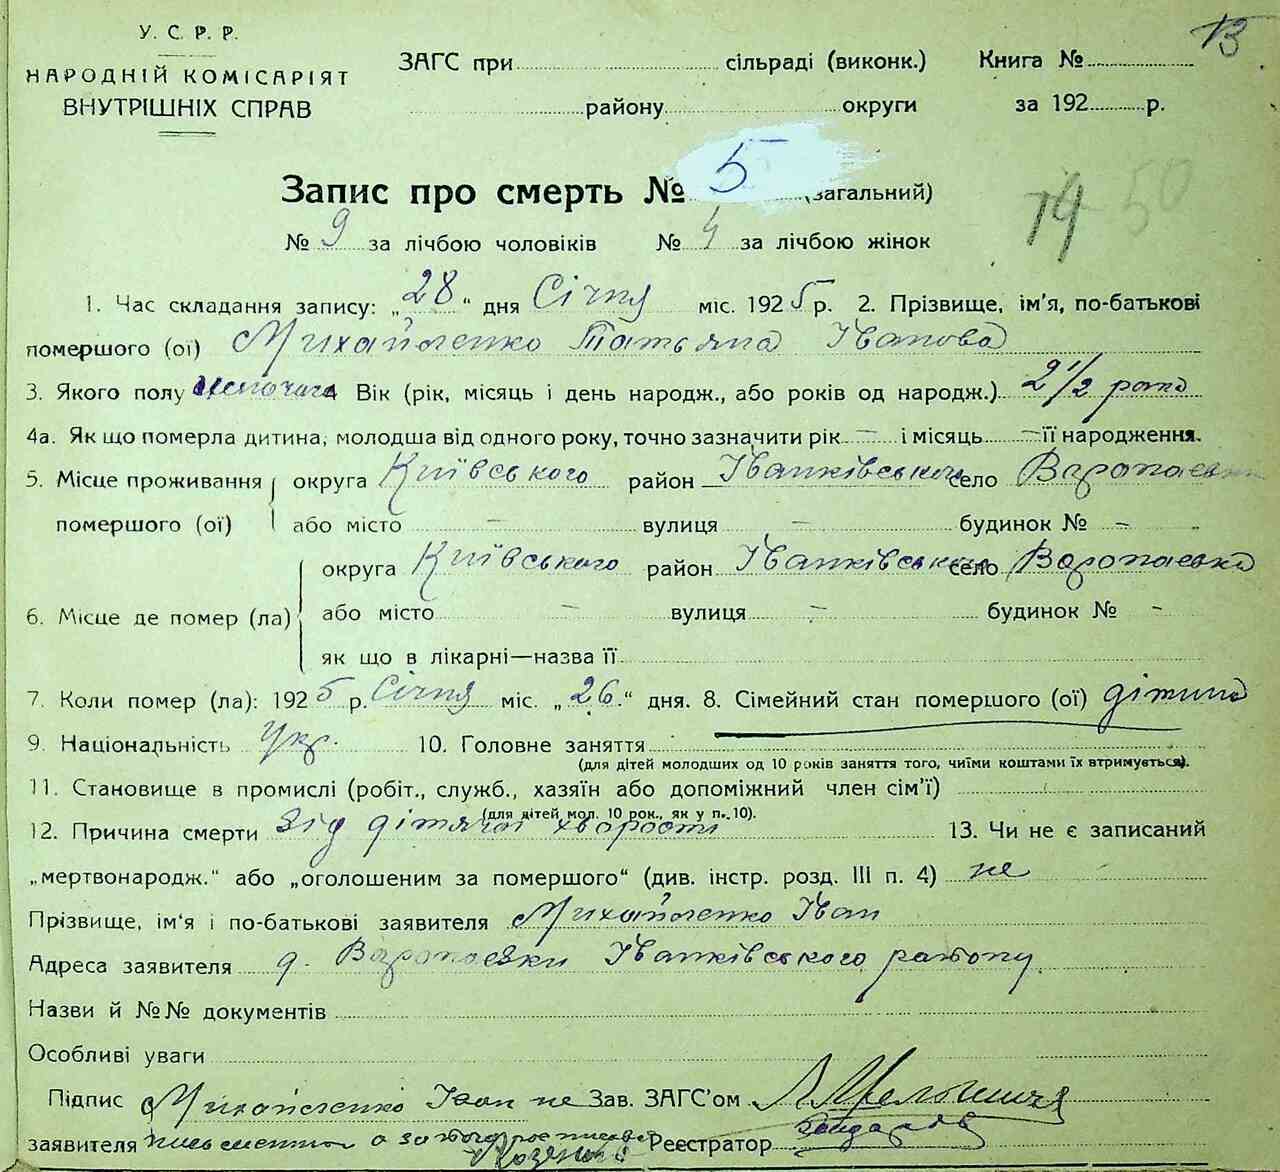 У. С. Р. Р.
НАРОДНІЙ КОМІСАРІЯТ
ВНУТРІШНІХ СПРАВ
13
ЗАГС при сільраді (виконк.) Книга №
району округи за 192 р.
Запис про смерть № 5 (загальний)
74 50
№ 9 за лічбою чоловіків № 4 за лічбою жінок
1. Час складання запису: „28“ дня Січня міс. 1925 р. 2. Прізвище, ім'я, по-батькові
помершого (ої) Михайленко Татьяна Іванова
3. Якого полу 4 Вік (рік, місяць і день народж., або років од народж.) 2 1/2 рока
4а. Як що померла дитина, молодша від одного року, точно зазначити рік – і місяць – її народження.
5. Місце проживання округа Київського район Іванківського село
помершого (ої) або місто – вулиця – будинок № –
округа Київського район Іванківського село
6. Місце де помер (ла) або місто – вулиця – будинок № –
як що в лікарні—назва її
7. Коли помер (ла): 1925 р. Січня міс. „26“ дня. 8. Сімейний стан помершого (ої) дітина
9. Національність Укр. 10. Головне заняття
(для дітей молодших од 10 років заняття того, чиїми коштами їх втримується).
11. Становище в промислі (робіт., служб., хазяїн або допоміжний член сім'ї)
(для дітей мол. 10 рок., як у п. 10).
12. Причина смерти Від дітячої хворости 13. Чи не є записаний
„мертвонародж.“ або „оголошеним за помершого“ (див. інстр. розд. III п. 4) не
Прізвище, ім'я і по-батькові заявителя Михайленко Іван
Адреса заявителя Іванківського району
Назви й №№ документів
Особливі уваги
Підпис Михайленко Іван не Зав. ЗАГС'ом
заявителя письменний а за його росписався Реестратор